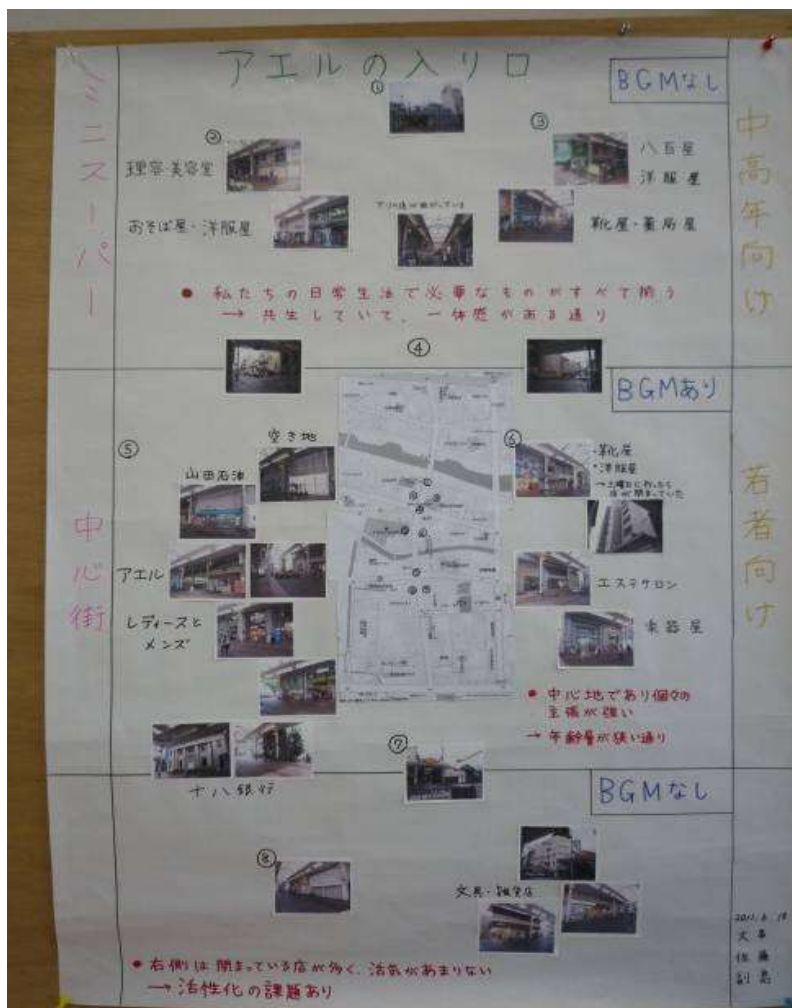 アエルの入り口
BGMなし
ミニスーパー
中高年向け
①
②
③
理容・美容室
八百屋
洋服屋
おそば屋・洋服屋
靴屋・薬局屋
● 私たちの日常生活で必要なものがすべて揃う
→ 共生していて、一体感がある通り
④
BGMあり
中心街
若者向け
⑤
空き地
山田石油
アエル
レディースと
メンズ
十八銀行
⑥
・靴屋
・洋服屋
→土曜日に行ったら
店が閉まっていた
エステサロン
楽器屋
● 中心地であり個々の
主張が強い
→ 年齢層が狭い通り
⑦
BGMなし
⑧
文具・雑貨店
● 右側は閉まっている店が多く、活気があまりない
→ 活性化の課題あり
佐藤
副島